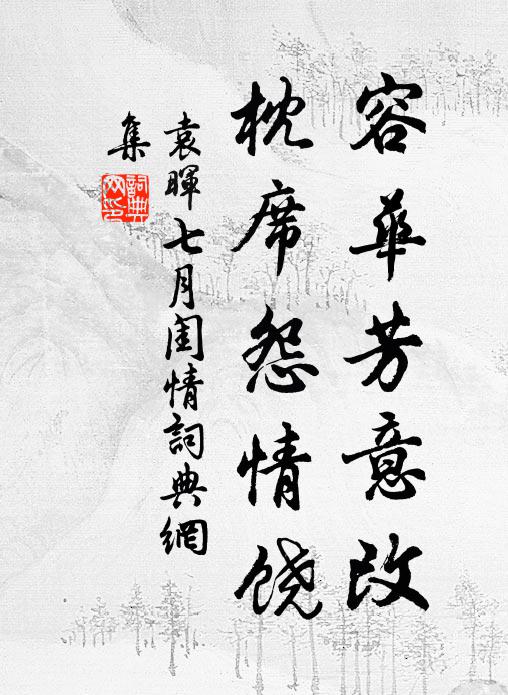 容華芳意改
枕席怨情饶
袁暉七月閨情詞典網
集
詞典
网印